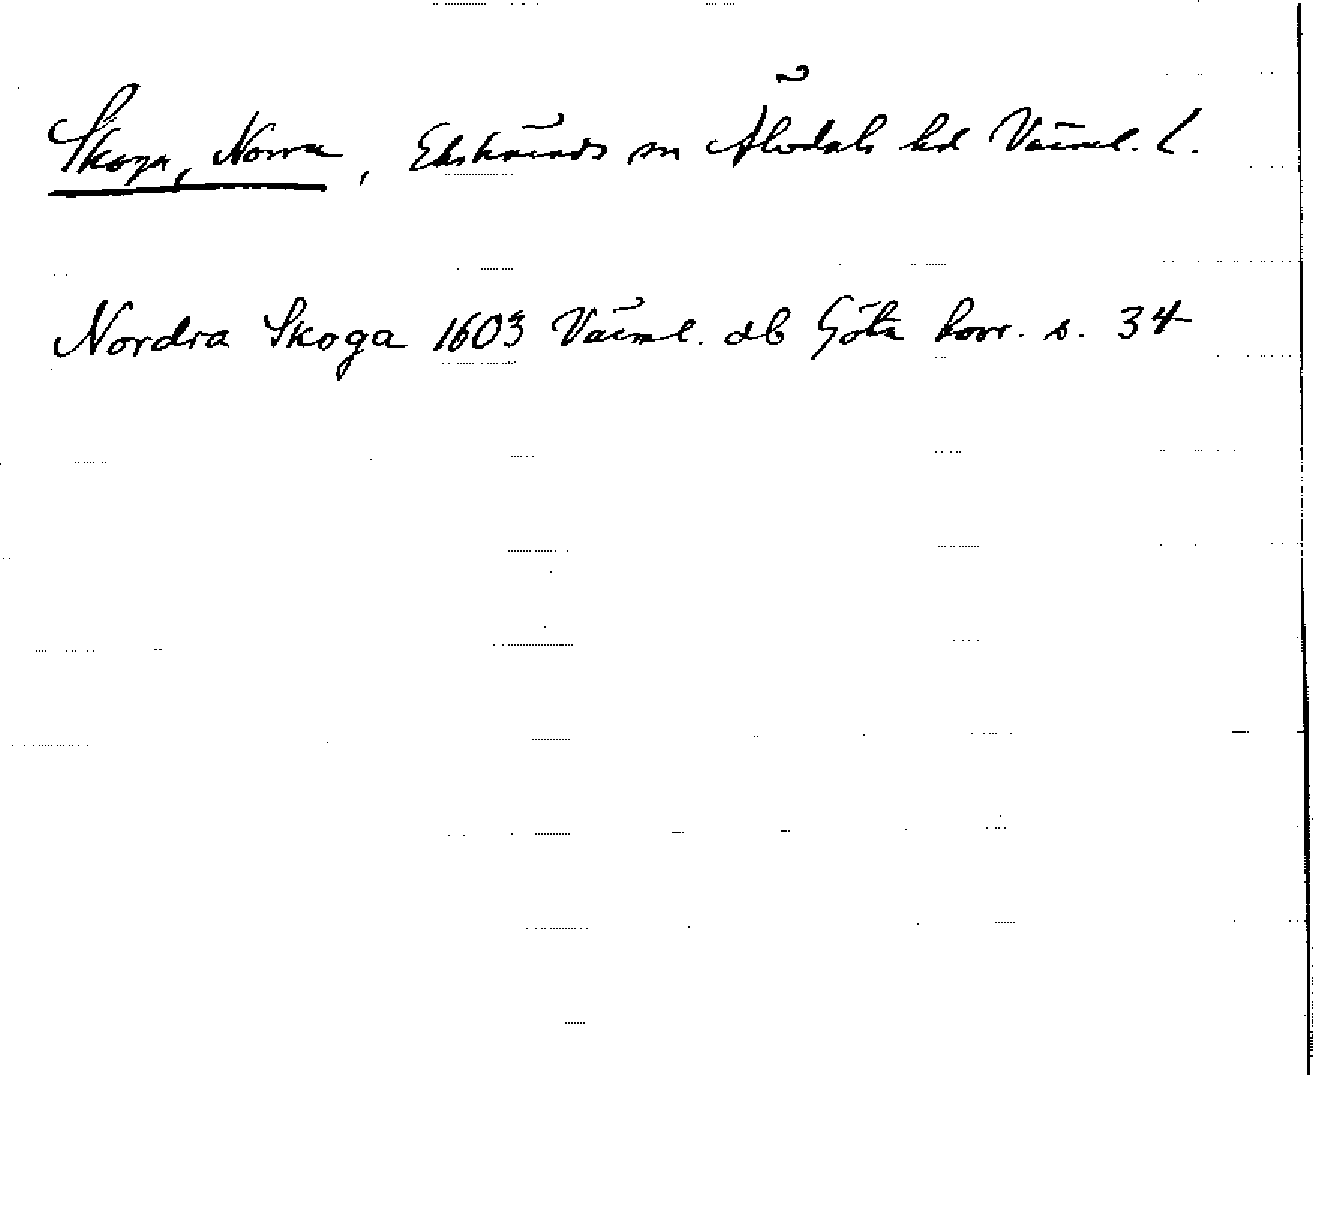 Skoga, Norra, Ekshärads sn Älvdals hd Värml. l.
Nordra Skoga 1603 Värml. db Göta hovr. s. 34